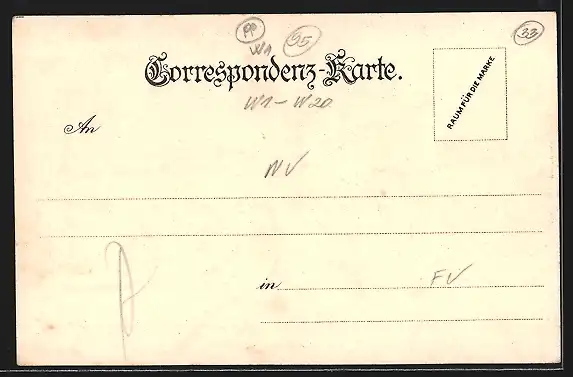 PP 95 33
W1
Correspondenz-Karte.
RAUM FÜR DIE MARKE
W1-W20
An
NV
in FV